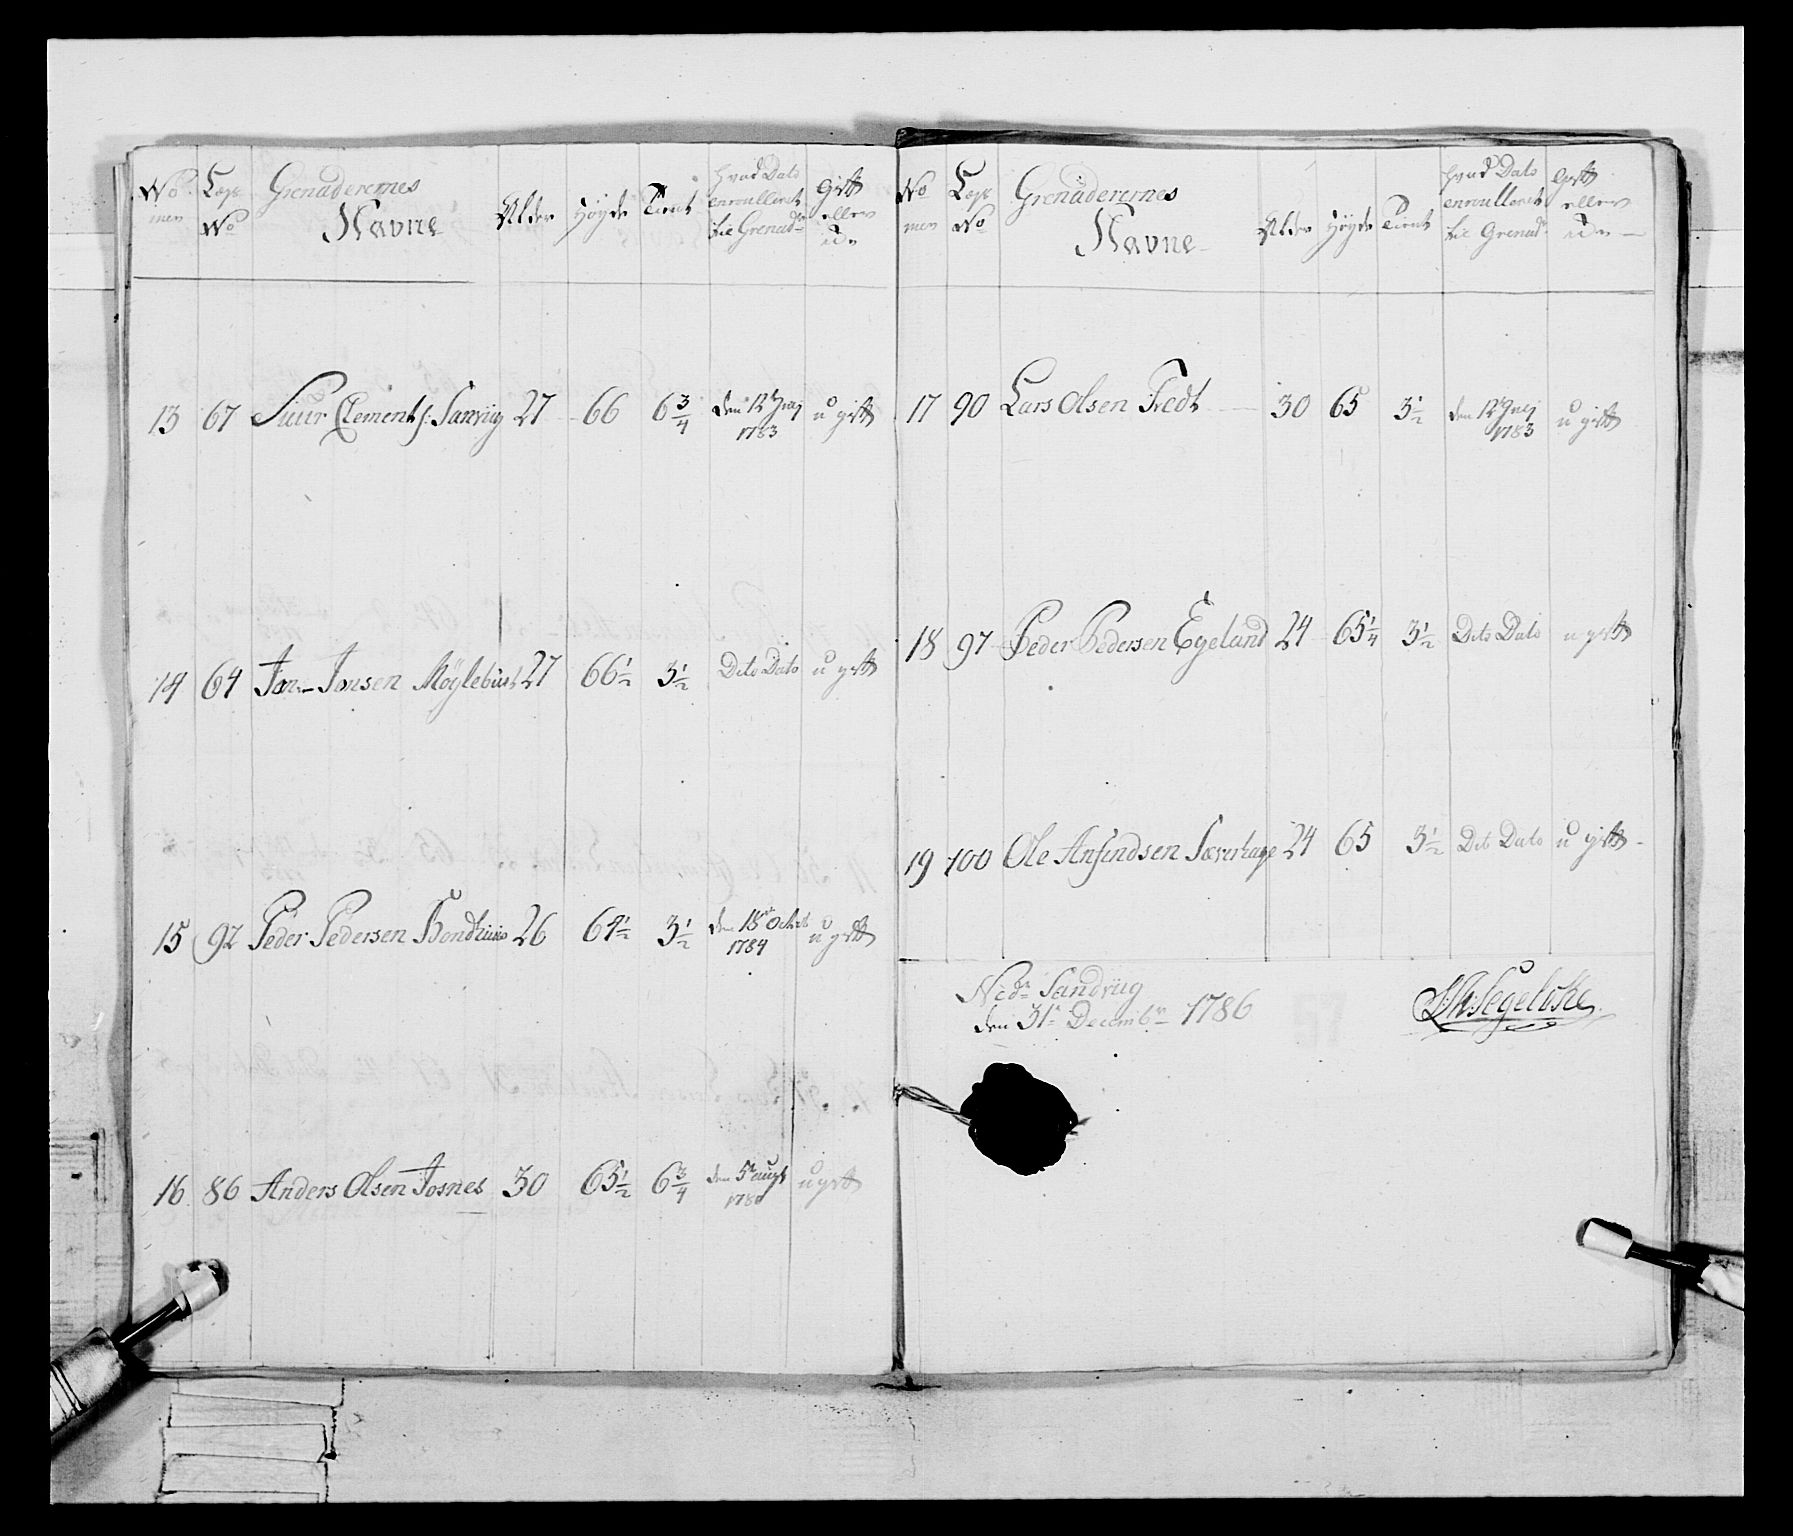 No men Lægs No Grenaderernes Navne Alder Høyde Tient hvad Dato enroulleret til Grenadr Gift eller u-
13 67 Siuur Clements: Sanviig 27 66 6 3/4 den 12t Junj 1783 u gift
14 64 Jon Jonsen Möglebust 27 66 1/2 3 1/2 Dito Dato u gift
15 92 Peder Pedersen Bondhuus 26 64 1/2 3 1/2 den 18 Octob 1784 u gift
16 86 Anders Olsen Josnes 30 65 1/2 6 3/4 den 5t augt u gift
No men Lægs No Grenaderernes Navne Alder Høyde Tient hvad Dato enroulleret til Grenadr Gift eller u-
17 90 Lars Olsen Tvedt 30 65 3 1/2 den 12t Junj 1783 u gift
18 97 Peder Pedersen Egeland 24 65 1/4 3 1/2 Dito Dato u gift
19 100 Ole Anfindsen 24 65 3 1/2 Dito Dato u gift
Nedr Sandviig
den 31t Decembr 1786
Segelcke